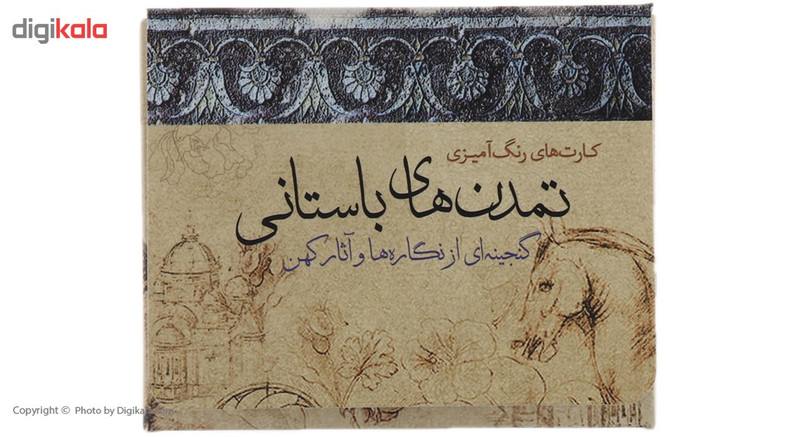 digikala
کارت‌های رنگ‌آمیزی
تمدن‌های باستانی
گنجینه‌ای از نگاره‌ها و آثار کهن
Copyright © Photo by Digika